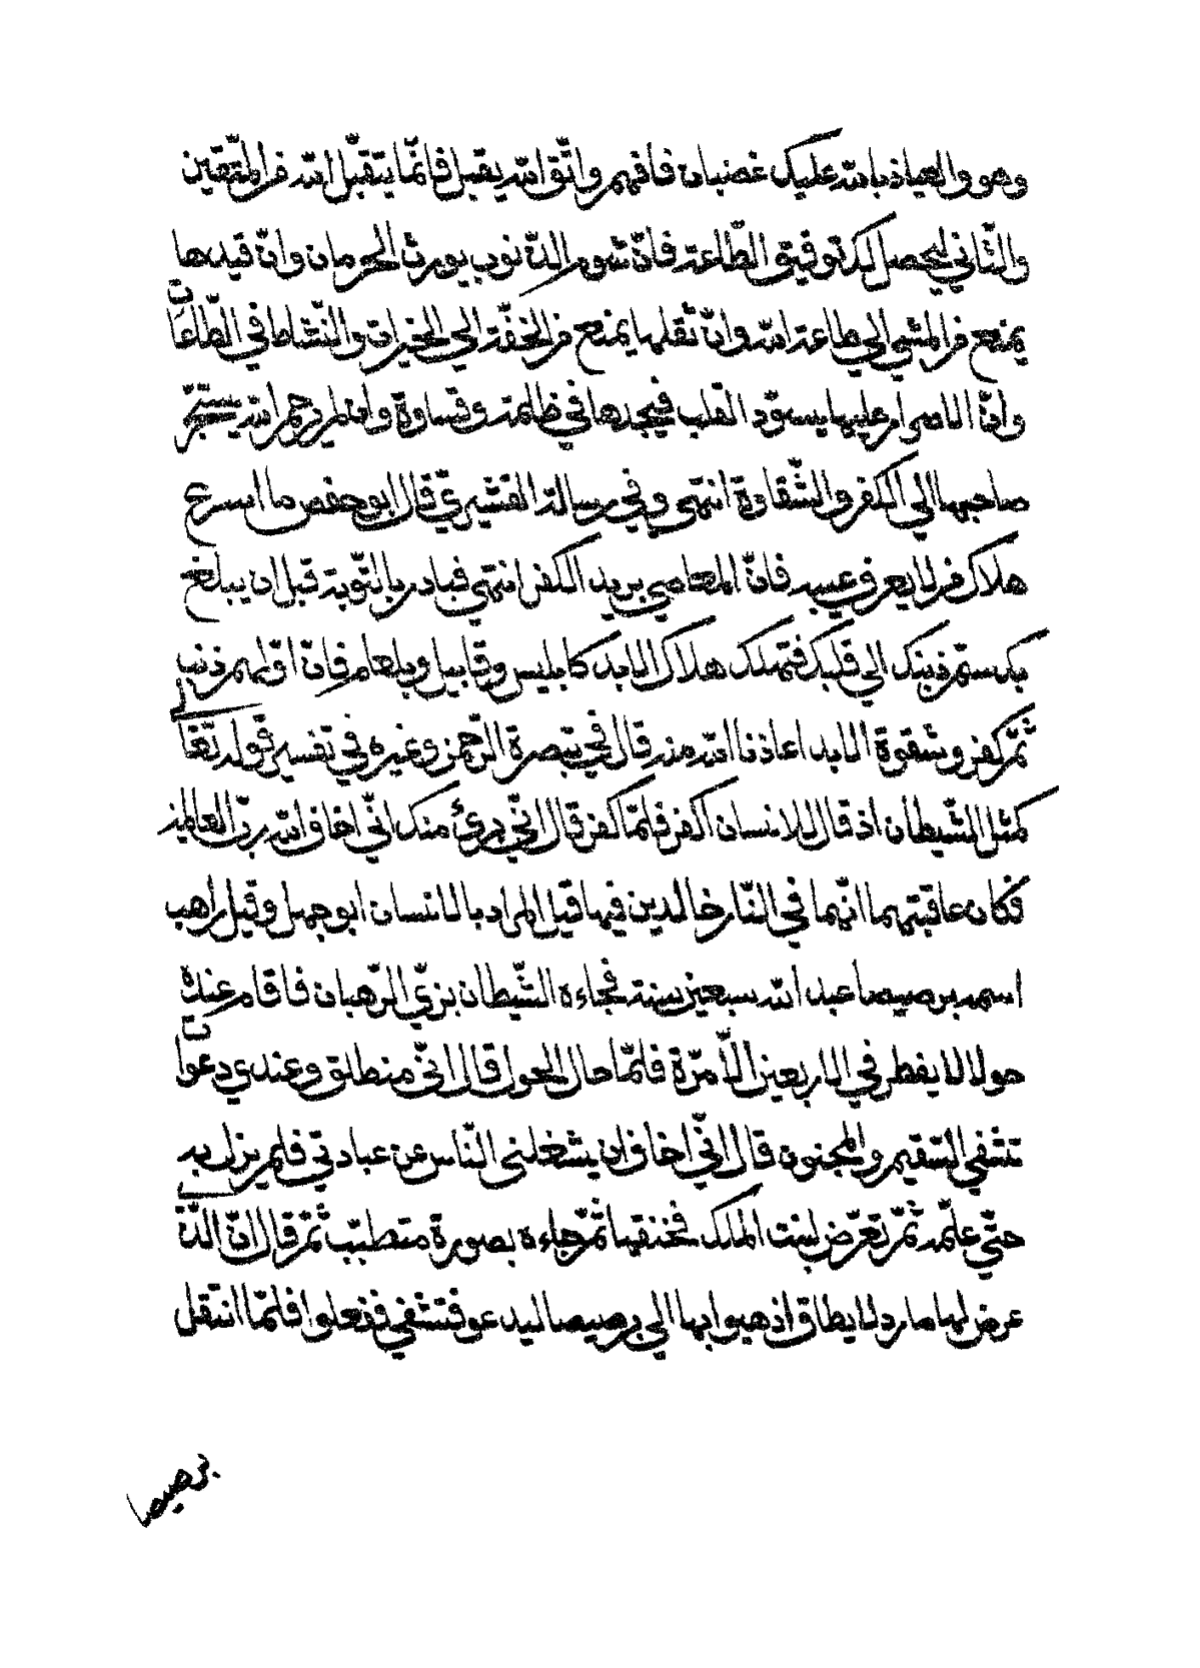 وهو والعياذ بالله عليك غضبان فافهم واتّق الله يقبل فانّما يتقبّل الله من المتّقين
والثّاني ليحصل لك توفيق الطّاعة فانّ شوم الذّنوب يورث الحرمان وانّ قيدها
يمنع من المشي الي طاعة الله وانّ ثقلها يمنع من الخفّة الي الخيرات والنّشاط في الطّاعات
وانّ الاصرار عليها يسوّد القلب فيجدها في ظلمة وقساوة وان لم يرحم الله يستجرّ
صاحبها الي الكفر والشّقاوة انتهي وفي رسالة القشيريّ قال ابو حفص ما اسرع
هلاك من لا يعرف عيبه فانّ المعاصي بريد الكفر انتهي فبادر بالتّوبة قبل ان يبلغ
بك ستم ذنبك الي قلبك فتهلك هلاك الابد كابليس وقابيل وبلعام فانّ اوّلهم ذنب
ثمّ كفر وشقوة الابد اعاذنا الله منه قال في تبصرة الرّحمن وغيره في تفسير قوله تعالي
كمثل الشّيطان اذ قال للانسان اكفر فلمّا كفر قال انّي بريئ منك انّي اخاف الله ربّ العالمين
فكان عاقبتهما انّهما في النّار خالدين فيها قيل المراد بالانسان ابو جهل وقيل راهب
اسمه برصيصا عبد الله سبعين سنة فجاءه الشّيطان بزيّ الرّهبان فاقام عنده
حولا لا يفطر في الاربعين الّا مرّة فلمّا حال الحول قال انّي منطلق وعندي دعوات
تشفي السّقيم والمجنون قال انّي اخاف ان يشغلني النّاس عن عبادتي فلم يزل به
حتّي علّمه ثمّ تعرّض لبنت الملك فخنقها ثمّ جاءه بصورة متطبّب ثمّ قال انّ الّذي
عرض لها مارد لا يطاق اذهبوا بها الي برصيصا ليدعو فتشفي ففعلوا فلمّا انتقل
برصيصا